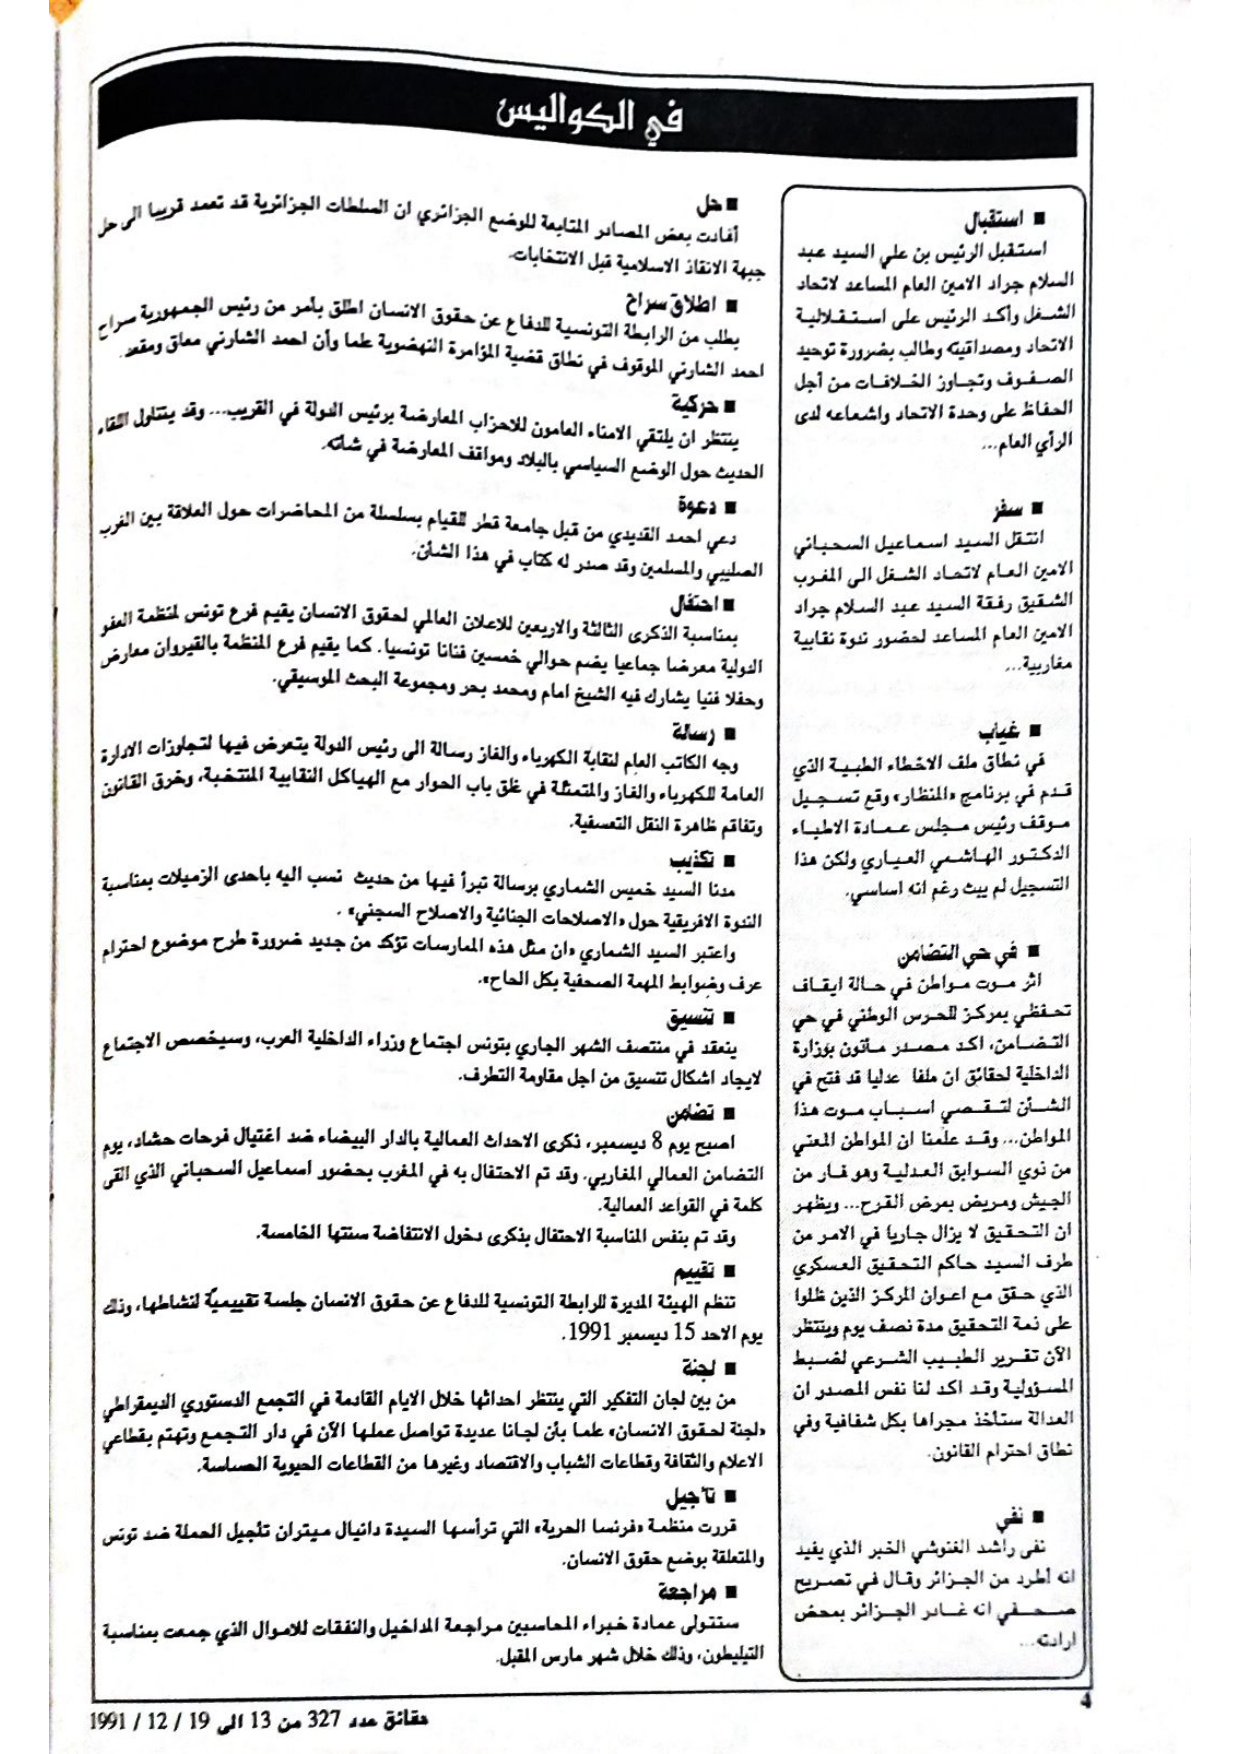 في الكواليس
■ استقبال
استقبل الرئيس بن علي السيد عبد
السلام جراد الامين العام المساعد لاتحاد
الشغل وأكد الرئيس على استقلالية
الاتحاد ومصداقيته وطالب بضرورة توحيد
الصفوف وتجاوز الخلافات من أجل
الحفاظ على وحدة الاتحاد واشعاعه لدى
الرأي العام...
■ سفر
انتقل السيد اسماعيل السحباني
الامين العام لاتحاد الشغل الى المغرب
الشقيق رفقة السيد عبد السلام جراد
الامين العام المساعد لحضور ندوة نقابية
مغاربية...
■ غياب
في نطاق ملف الاخطاء الطبية الذي
قدم في برنامج «المنظار» وقع تسجيل
موقف رئيس مجلس عمادة الاطباء
الدكتور الهاشمي العياري ولكن هذا
التسجيل لم يبث رغم انه اساسي.
■ في حي التضامن
اثر موت مواطن في حالة ايقاف
تحفظي بمركز للحرس الوطني في حي
التضامن، اكد مصدر مأذون بوزارة
الداخلية لحقائق ان ملفا عدليا قد فتح في
الشأن لتقصي اسباب موت هذا
المواطن... وقد علمنا ان المواطن المعني
من ذوي السوابق العدلية وهو فار من
الجيش ومريض بمرض القرح... ويظهر
ان التحقيق لا يزال جاريا في الامر من
طرف السيد حاكم التحقيق العسكري
الذي حقق مع اعوان المركز الذين ظلوا
على ذمة التحقيق مدة نصف يوم وينتظر
الآن تقرير الطبيب الشرعي لضبط
المسؤولية وقد اكد لنا نفس المصدر ان
العدالة ستأخذ مجراها بكل شفافية وفي
نطاق احترام القانون.
■ نفي
نفى راشد الغنوشي الخبر الذي يفيد
انه أطرد من الجزائر وقال في تصريح
صحفي انه غادر الجزائر بمحض
ارادته...
■ حل
أفادت بعض المصادر المتابعة للوضع الجزائري ان السلطات الجزائرية قد تعمد قريبا الى حل
جبهة الانقاذ الاسلامية قبل الانتخابات.
■ اطلاق سراح
بطلب من الرابطة التونسية للدفاع عن حقوق الانسان اطلق بأمر من رئيس الجمهورية سراح
احمد الشارني الموقوف في نطاق قضية المؤامرة النهضوية علما وأن احمد الشارني معاق ومقعد.
■ حركية
ينتظر ان يلتقي الامناء العامون للاحزاب المعارضة برئيس الدولة في القريب... وقد يتناول اللقاء
الحديث حول الوضع السياسي بالبلاد ومواقف المعارضة في شانه.
■ دعوة
دعي احمد القديدي من قبل جامعة قطر للقيام بسلسلة من المحاضرات حول العلاقة بين الغرب
الصليبي والمسلمين وقد صدر له كتاب في هذا الشأن.
■ احتفال
بمناسبة الذكرى الثالثة والاربعين للاعلان العالمي لحقوق الانسان يقيم فرع تونس لمنظمة العفو
الدولية معرضا جماعيا يضم حوالي خمسين فنانا تونسيا. كما يقيم فرع المنظمة بالقيروان معارض
وحفلا فنيا يشارك فيه الشيخ امام ومحمد بحر ومجموعة البحث الموسيقي.
■ رسالة
وجه الكاتب العام لنقابة الكهرباء والغاز رسالة الى رئيس الدولة يتعرض فيها لتجاوزات الادارة
العامة للكهرباء والغاز والمتمثلة في غلق باب الحوار مع الهياكل النقابية المنتخبة، وخرق القانون
وتفاقم ظاهرة النقل التعسفية.
■ تكذيب
مدنا السيد خميس الشماري برسالة تبرأ فيها من حديث نسب اليه باحدى الزميلات بمناسبة
الندوة الافريقية حول «الاصلاحات الجنائية والاصلاح السجني» .
واعتبر السيد الشماري «ان مثل هذه الممارسات تؤكد من جديد ضرورة طرح موضوع احترام
عرف وضوابط المهمة الصحفية بكل الحاح».
■ تنسيق
ينعقد في منتصف الشهر الجاري بتونس اجتماع وزراء الداخلية العرب، وسيخصص الاجتماع
لايجاد اشكال تنسيق من اجل مقاومة التطرف.
■ تضامن
اصبح يوم 8 ديسمبر، ذكرى الاحداث العمالية بالدار البيضاء ضد اغتيال فرحات حشاد، يوم
التضامن العمالي المغاربي. وقد تم الاحتفال به في المغرب بحضور اسماعيل السحباني الذي القى
كلمة في القواعد العمالية.
وقد تم بنفس المناسبة الاحتفال بذكرى دخول الانتفاضة سنتها الخامسة.
■ تقييم
تنظم الهيئة المديرة للرابطة التونسية للدفاع عن حقوق الانسان جلسة تقييميّة لنشاطها، وذلك
يوم الاحد 15 ديسمبر 1991.
■ لجنة
من بين لجان التفكير التي ينتظر احداثها خلال الايام القادمة في التجمع الدستوري الديمقراطي
«لجنة لحقوق الانسان» علما بأن لجانا عديدة تواصل عملها الآن في دار التجمع وتهتم بقطاعي
الاعلام والثقافة وقطاعات الشباب والاقتصاد وغيرها من القطاعات الحيوية الحساسة.
■ تأجيل
قررت منظمة «فرنسا الحرية» التي ترأسها السيدة دانيال ميتران تأجيل الحملة ضد تونس
والمتعلقة بوضع حقوق الانسان.
■ مراجعة
ستتولى عمادة خبراء المحاسبين مراجعة المداخيل والنفقات للاموال الذي جمعت بمناسبة
التيليطون، وذلك خلال شهر مارس المقبل.
4
حقائق عدد 327 من 13 الى 19 / 12 / 1991